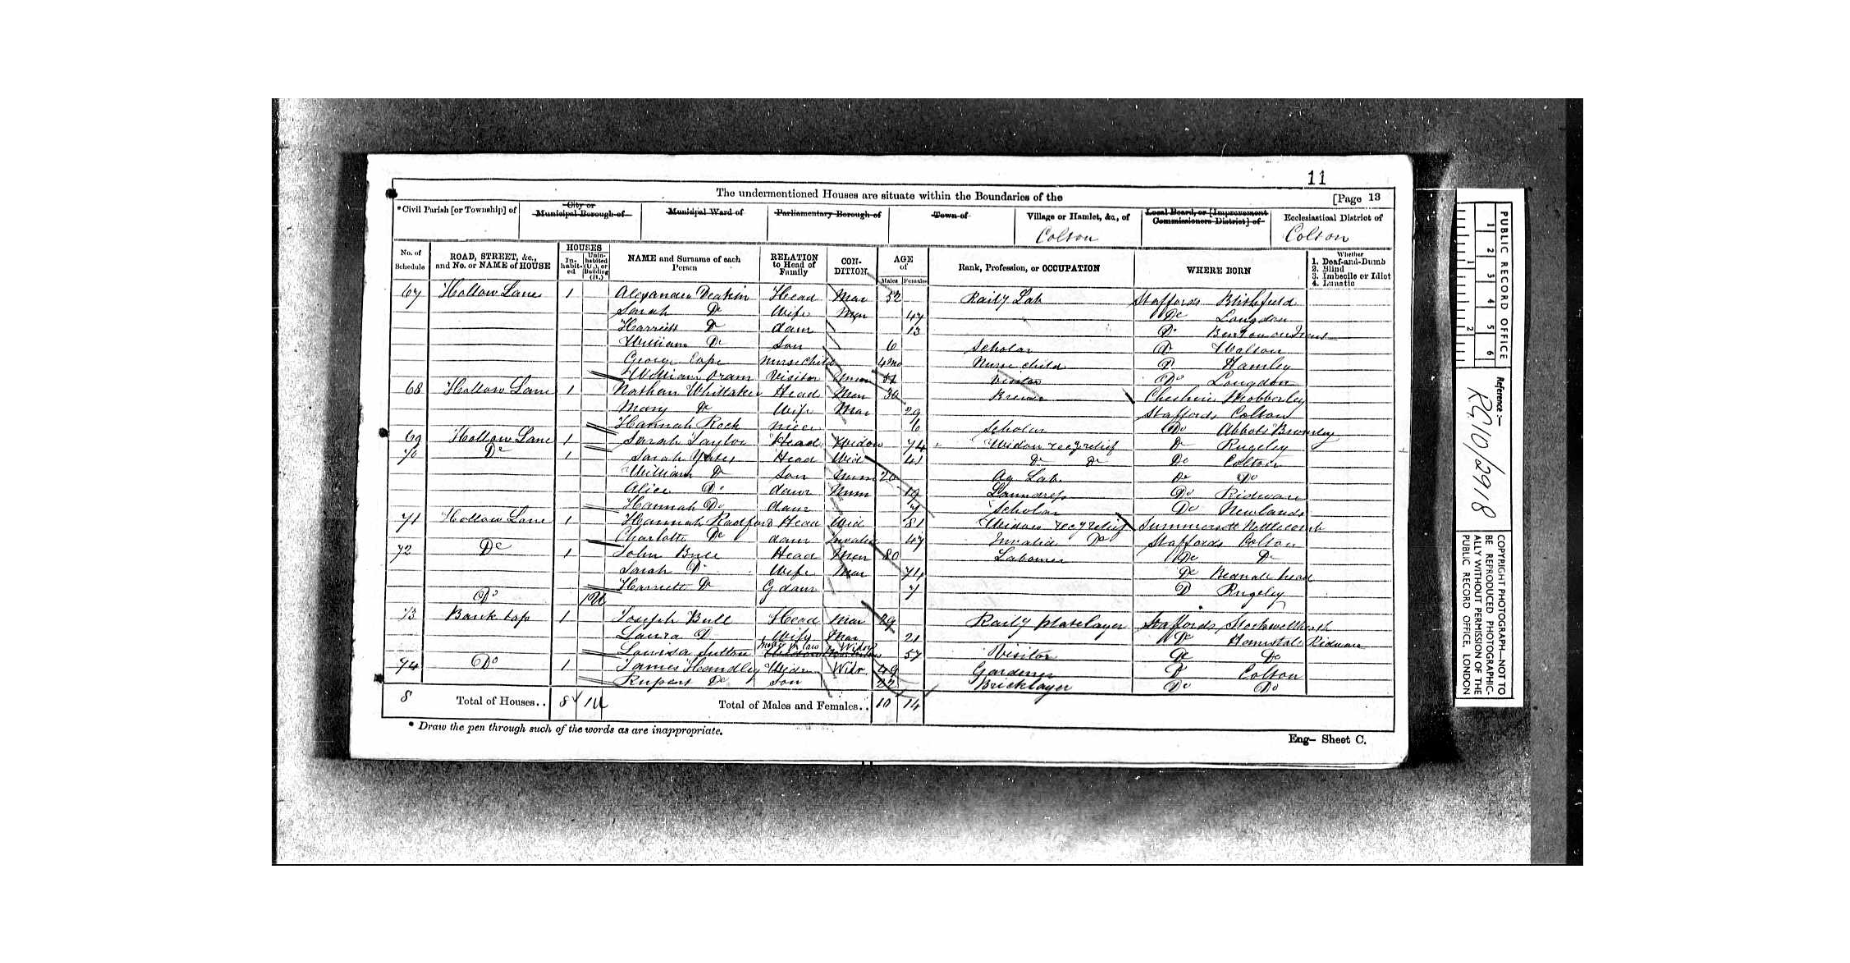 11
The undermentioned Houses are situate within the Boundaries of the
[Page 13
*Civil Parish [or Township] of
City or Municipal Borough of
Municipal Ward of
Parliamentary Borough of
Town of
Village or Hamlet, &c., of
Local Board, or [Improvement Commissioners District] of
Ecclesiastical District of
Colton
Colton
No. of Schedule
ROAD, STREET, &c., and No. or NAME of HOUSE
HOUSES
Inhabited
Uninhabited (U.), or Building (B.)
NAME and Surname of each Person
RELATION to Head of Family
CONDITION
AGE of
Males
Females
Rank, Profession, or OCCUPATION
WHERE BORN
Whether
1. Deaf-and-Dumb
2. Blind
3. Imbecile or Idiot
4. Lunatic
67 Hollow Lane 1 Alexander Deakin Head Mar 52 Raily Lab Staffords Blithfield
Sarah Do Wife Mar 47 Do Longdon
Harriett D daur 13 Do Burton on Trent
William Do Son 6 Scholar Do
George Cope Nurse child 4mo Nurse child D
William Oram Visitor Unm Visitor Do Longdon
68 Hollow Lane 1 Nathan Whittaker Head Mar 30 Cheshire Mobberley
Mary Do Wife Mar 29 Staffords Colton
Hannah Rock niece 6 Scholar Do Abbots Bromley
69 Hollow Lane 1 Sarah Taylor Head Widow 74 Widow recg relief D Rugeley
70 Do 1 Sarah Yates Head Wid 41 Do Do Do Colton
William D Son Unm 20 Ag Lab Do Do
Alice Do daur Unm 19 Laundress Do Ridware
Hannah Do daur 7 Scholar Do Newlands
71 Hollow Lane 1 Hannah Radford Head Wid 81 Widow recg relief Summersett Nettlecomb
Charlotte Do daur 47 Invalid Do Staffords Colton
72 Do 1 John Bull Head Mar 80 Labourer Do D
Sarah D Wife Mar 74 Do
Harriett D G daur 7 D Rugeley
Do 1U
73 Bank top 1 Joseph Bull Head Mar 29 Raily platelayer Staffords Stockwell heath
Laura D Wife Mar 21 Do Hamstall Ridware
Louisa Sutton Mor in law Widow 57 Visitor Do Do
74 Do 1 James Handley Widr 49 Gardener D Colton
Rupert Do Son 22 Bricklayer Do Do
8 Total of Houses.. 8 1U Total of Males and Females.. 10 14
* Draw the pen through such of the words as are inappropriate.
Eng- Sheet C.
PUBLIC RECORD OFFICE
1 2 3 4 5 6
1 2
Reference :-
RG10/2918
COPYRIGHT PHOTOGRAPH—NOT TO BE REPRODUCED PHOTOGRAPHICALLY WITHOUT PERMISSION OF THE PUBLIC RECORD OFFICE, LONDON